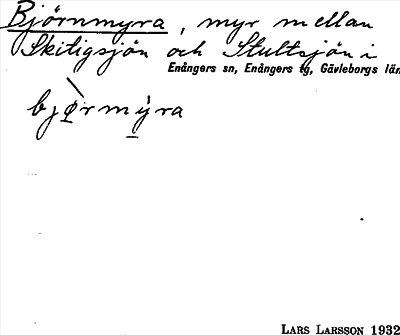 Björnmyra, myr mellan
Skitigsjön och Stultsjön i
Enångers sn, Enångers tg, Gävleborgs län
bjørmýra
LARS LARSSON 1932